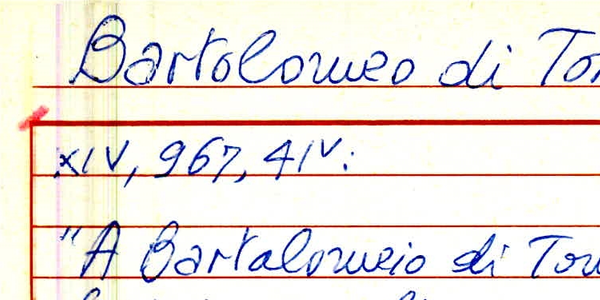 Bartolomeo di
XIV, 967, 41v:
"A Bartalomeio di